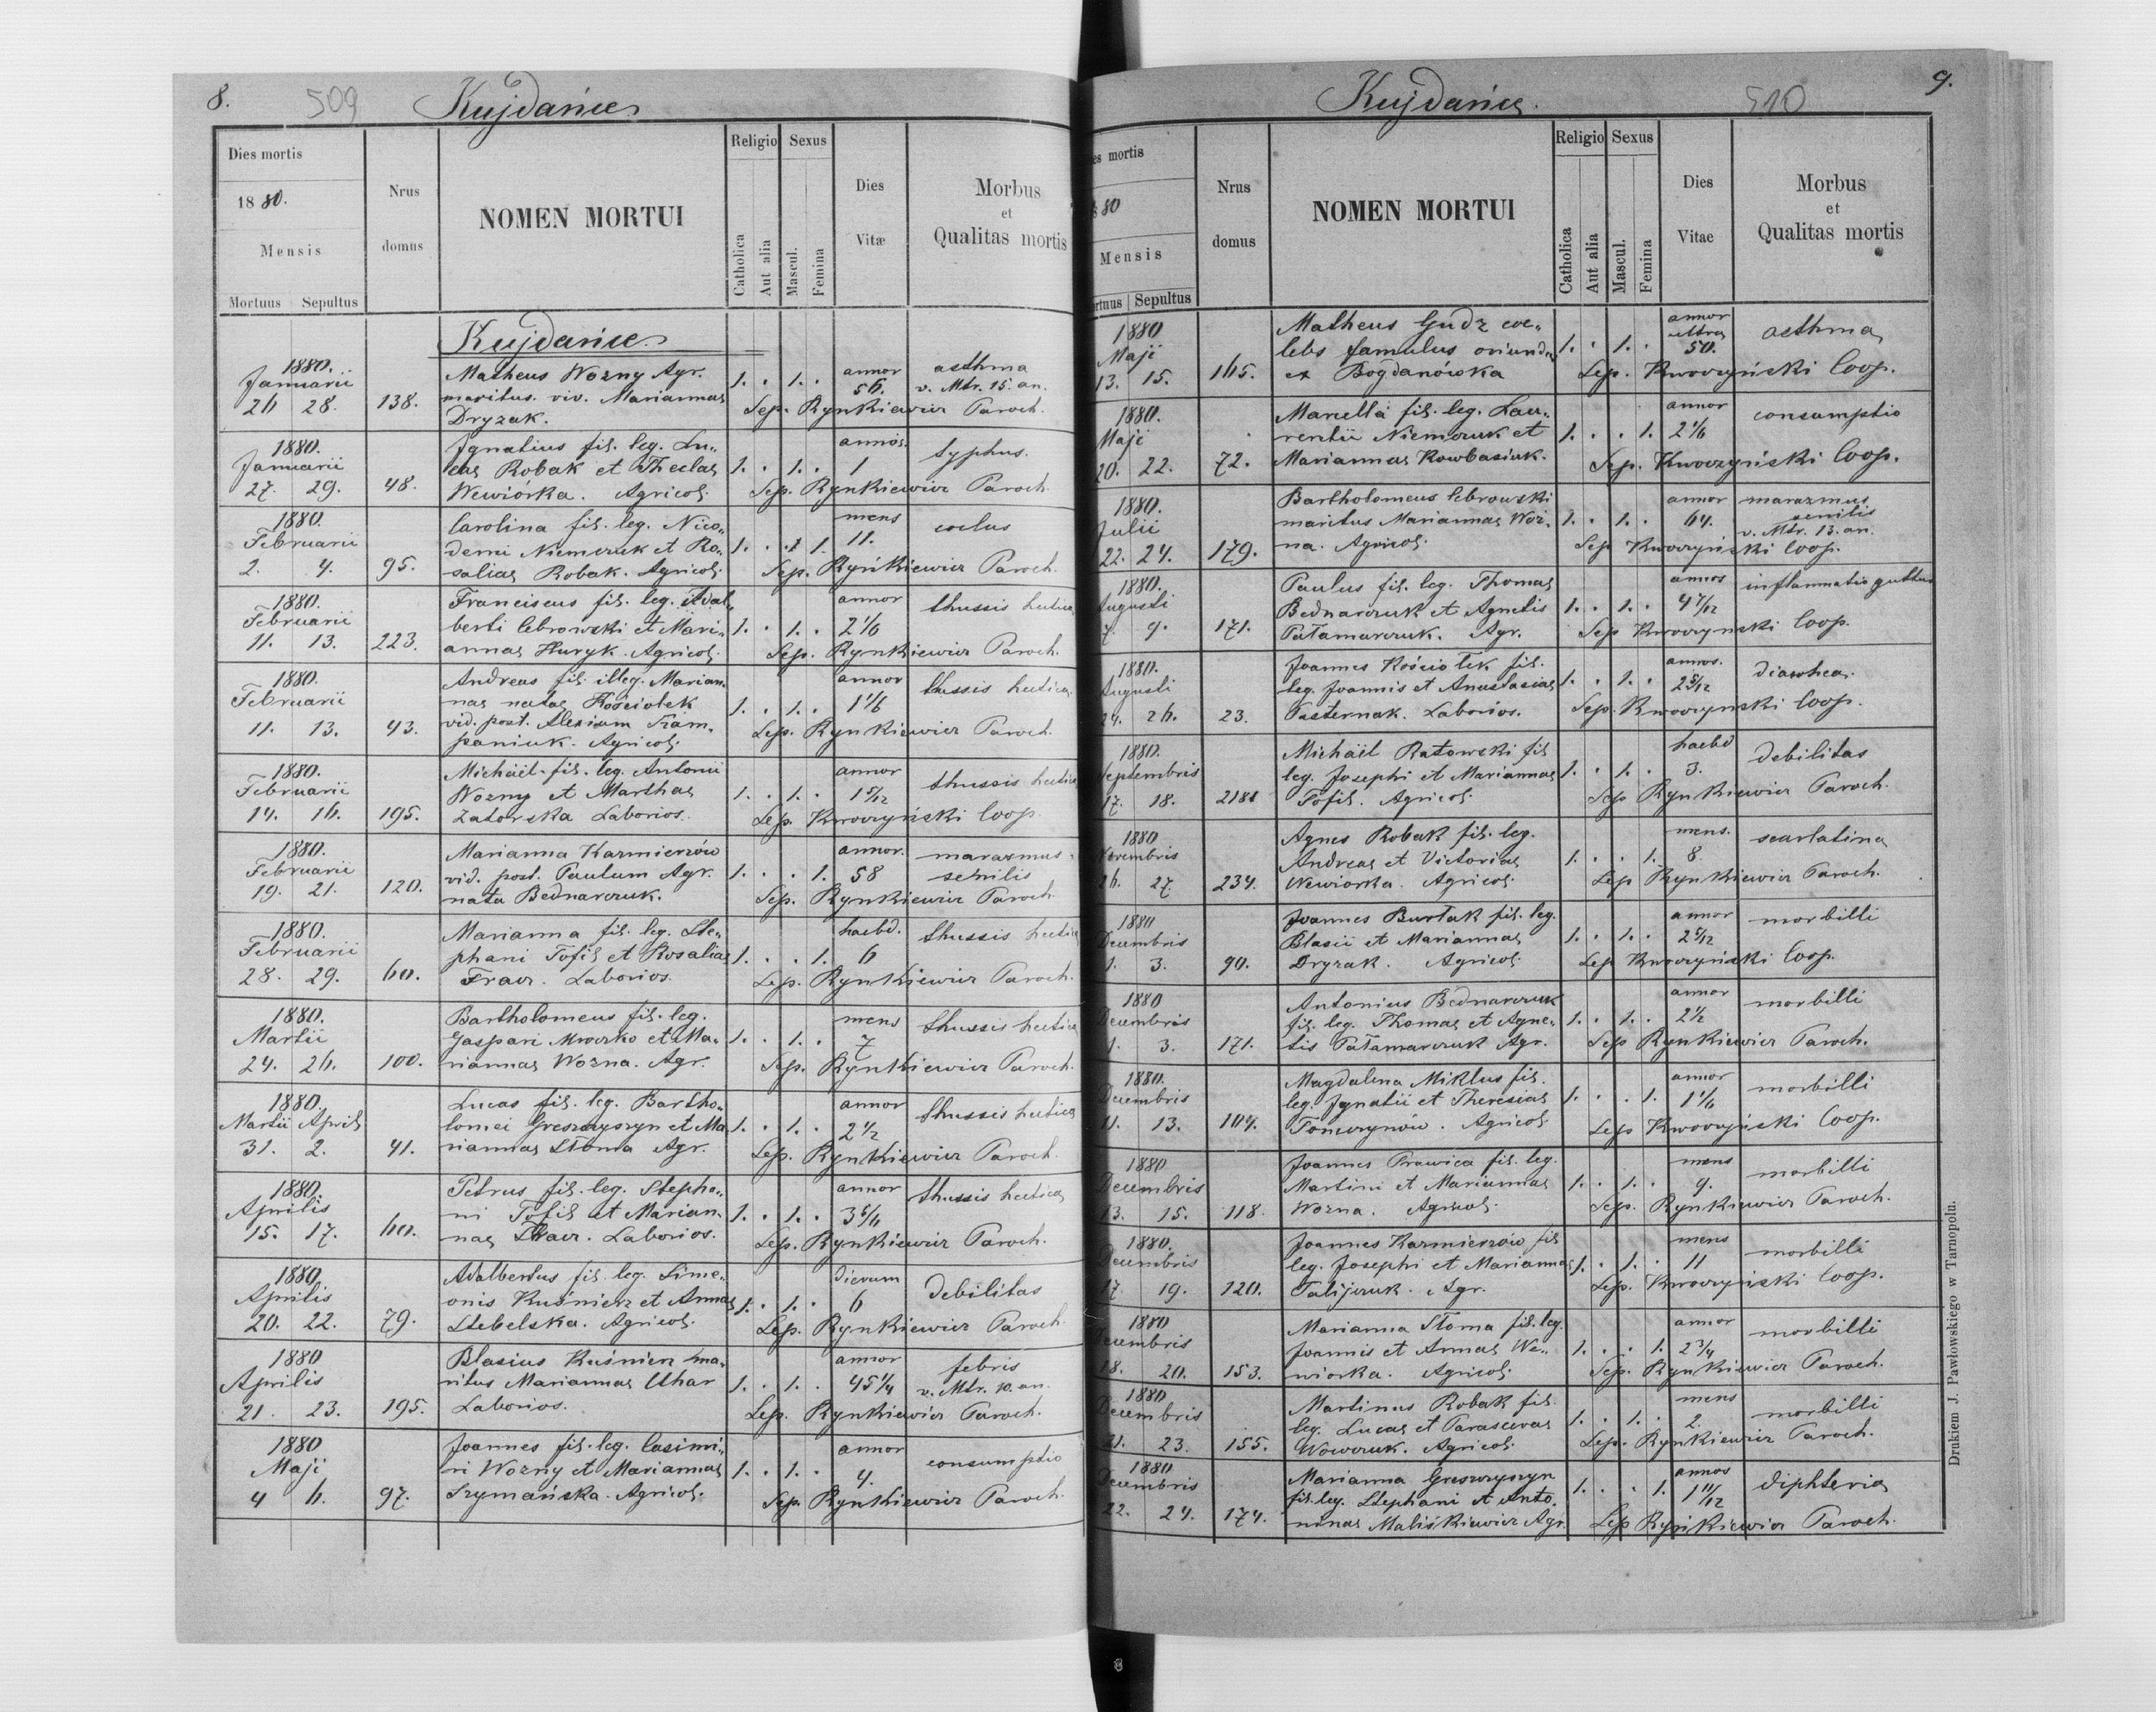 8.
509
Kujdańce
Dies mortis
1880.
Mensis
Mortuus Sepultus
Nrus domus
NOMEN MORTUI
Religio
Catholica
Aut alia
Sexus
Mascul.
Femina
Dies Vitæ
Morbus et Qualitas mortis
Kujdańce
1880. Matheus Wozny Agr. annor asthma
Januarii maritus. viv. Mariannae 1. . 1. . 56. v. Mtr. 15. an.
26 28. 138. Dryzak. Sep. Rynkiewicz Paroch.
1880. Ignatius fil. leg. Lu- annos. typhus.
Januarii cae Robak et Theclae 1. . 1. . 1
27. 29. 48. Wewiórka. Agricol. Sep. Rynkiewicz Paroch.
1880. Carolina fil. leg. Nico- mens
Februarii demi Niemczuk et Ro- 1. . . 1. 11.
2. 4. 95. saliae Robak. Agricol. Sep. Rynkiewicz Paroch.
1880. Franciscus fil. leg. Adal- annor thussis hectica
Februarii berti Cebrowski et Mari- 1. . 1. . 2 1/6
11. 13. 223. annae Huryk. Agricol. Sep. Rynkiewicz Paroch.
1880. Andreas fil. illeg. Marian- annor thussis hectica
Februarii nae natae Kościołek 1. . 1. . 1 1/6
11. 13. 43. vid. post. Alexium Sep. Rynkiewicz Paroch.
paniuk. Agricol.
1880. Michäel fil. leg. Antonii annor thussis hectica
Februarii Wozny et Marthae 1. . 1. . 1 5/12
14. 16. 195. Zatorska Laborios. Sep. Kwoczyński Coop.
1880. Marianna Kazmierzów annor. marasmus
Februarii vid. post. Paulum Agr. 1. . . 1. 58 senilis
19. 21. 120. nata Bednarczuk. Sep. Rynkiewicz Paroch.
1880. Marianna fil. leg. Ste- haebd. thussis hectica
Februarii phani Tofil et Rosaliae 1. . . 1. 6
28. 29. 60. Laborios. Sep. Rynkiewicz Paroch.
1880. Bartholomeus fil. leg. mens thussis hectica
Martii Gaspari Mroczko et Ma- 1. . 1. . 7
24. 26. 100. riannae Wozna. Agr. Sep. Rynkiewicz Paroch.
1880. Lucas fil. leg. Bartho- annor thussis hectica
Martii Aprils lomei Greszczyszyn et Ma 1. . 1. . 2 1/2
31. 2. 41. riannae Słoma Agr. Sep. Rynkiewicz Paroch.
1880. Petrus fil. leg. Stepha- annor thussis hectica
Aprilis ni Tofil et Marian- 1. . 1. . 3 5/6
15. 17. 60. nae Laborios. Sep. Rynkiewicz Paroch.
1880. Adalbertus fil. leg. Sime- dierum debilitas
Aprilis onis Kuśnierz et Annae 1. . 1. . 6
20. 22. 79. Stebelska. Agricol. Sep. Rynkiewicz Paroch.
1880 Blasius Kuśnierz ma- annor febris
Aprilis ritus Mariannae Uhar 1. . 1. . 45 1/4 v. Mtr. 10. an.
21. 23. 195. Laborios. Sep. Rynkiewicz Paroch.
1880 Joannes fil. leg. Casimi- annor consumptio
Maji ri Wozny et Mariannae 1. . 1. . 4.
4 6. 97. Szymańska. Agricol. Sep. Rynkiewicz Paroch.
9.
510
Kujdańce.
es mortis
80
Mensis
rtuus Sepultus
Nrus domus
NOMEN MORTUI
Religio
Catholica
Aut alia
Sexus
Mascul.
Femina
Dies Vitae
Morbus et Qualitas mortis
1880 Matheus Gudz coe- annor ultra asthma
Maji lebs famulus oriundus 1. . 1. . 50.
13. 15. 165. ex Bogdanówka Sep. Kwoczyński Coop.
1880. Marcella fil. leg. Lau- annor consumptio
Maji rentii Niemczuk et 1. . . 1. 2 1/6
20. 22. 72. Mariannae Kowbasiuk. Sep. Kwoczyński Coop.
1880. Bartholomeus Cebrowski annor marazmus senilis
Julii maritus Mariannae Woz- 1. . 1. . 64. v. Mtr. 13. an.
22. 24. 179. na. Agricol. Sep Kwoczyński Coop.
1880. Paulus fil. leg. Thomae annos inflammatio guttur
Augusti Bednarczuk et Agnetis 1. . 1. . 4 7/12
7. 9. 171. Pałamarczuk. Agr. Sep Kwoczynski Coop.
1880. Joannes Kościołek fil. annos. diarrhea
Augusti leg. Joannis et Anastasiae 1. . 1. . 2 5/12
24. 26. 23. Pasternak. Laborios. Sep. Kwoczynski Coop.
1880. Michäel Ratowski fil haebd debilitas
Septembris leg. Josephi et Mariannae 1. . 1. . 3.
17. 18. 218 Tofil. Agricol. Sep Rynkiewicz Paroch.
1880 Agnes Robak fil. leg. mens. scarlatina
Novembris Andreae et Victoriae 1. . . 1. 8.
26. 27. 234. Wewiorka. Agricol. Sep Rynkiewicz Paroch.
1880 Joannes Burłak fil. leg. annor morbilli
Decembris Blasii et Mariannae 1. . 1. . 2 5/12
1. 3. 90. Dryzak. Agricol. Sep Kwoczyński Coop.
1880 Antonius Bednarczuk annor morbilli
Decembris fil. leg. Thomae et Agne- 1. . 1. . 2 1/2
1. 3. 171. tis Pałamarczuk Agr. Sep Rynkiewicz Paroch.
1880. Magdalena Miklus fil. annor morbilli
Decembris leg. Ignatii et Theresiae 1. . . 1. 1 1/6
11. 13. 104. Agricol. Sep Kwoczyński Coop.
1880 Joannes Prawica fil. leg. mens morbilli
Decembris Martini et Mariannae 1. . 1. . 9.
13. 15. 118. Wozna. Agricol. Sep. Rynkiewicz Paroch.
1880. Joannes Kazmierzow fil mens morbilli
Decembris leg. Josephi et Mariannae 1. . 1. . 11
17. 19. 120. Palijczuk. Agr. Sep. Kwoczyński Coop.
1880 Marianna Słoma fil. leg. annor morbilli
Decembris Joannis et Annae We- 1. . . 1. 2 3/4
18. 20. 153. wiorka. Agricol. Sep. Rynkiewicz Paroch.
1880 Martinus Robak fil. mens morbilli
Decembris leg. Lucae et Parascevae 1. . 1. . 2.
21. 23. 155. Wowczuk. Agricol. Sep. Rynkiewicz Paroch.
1880 Marianna Greszczyszyn annos diphteria
Decembris fil. leg. Stephani et Anto- 1. . . 1. 1 11/12
22. 24. 174. ninae Maliśkiewicz Agr. Sep Rynkiewicz Paroch.
Drukiem J. Pawłowskiego w Tarnopolu.